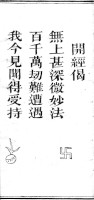 開經偈
無上甚深微妙法
百千萬刼難遭遇
我今見聞得受持
卐